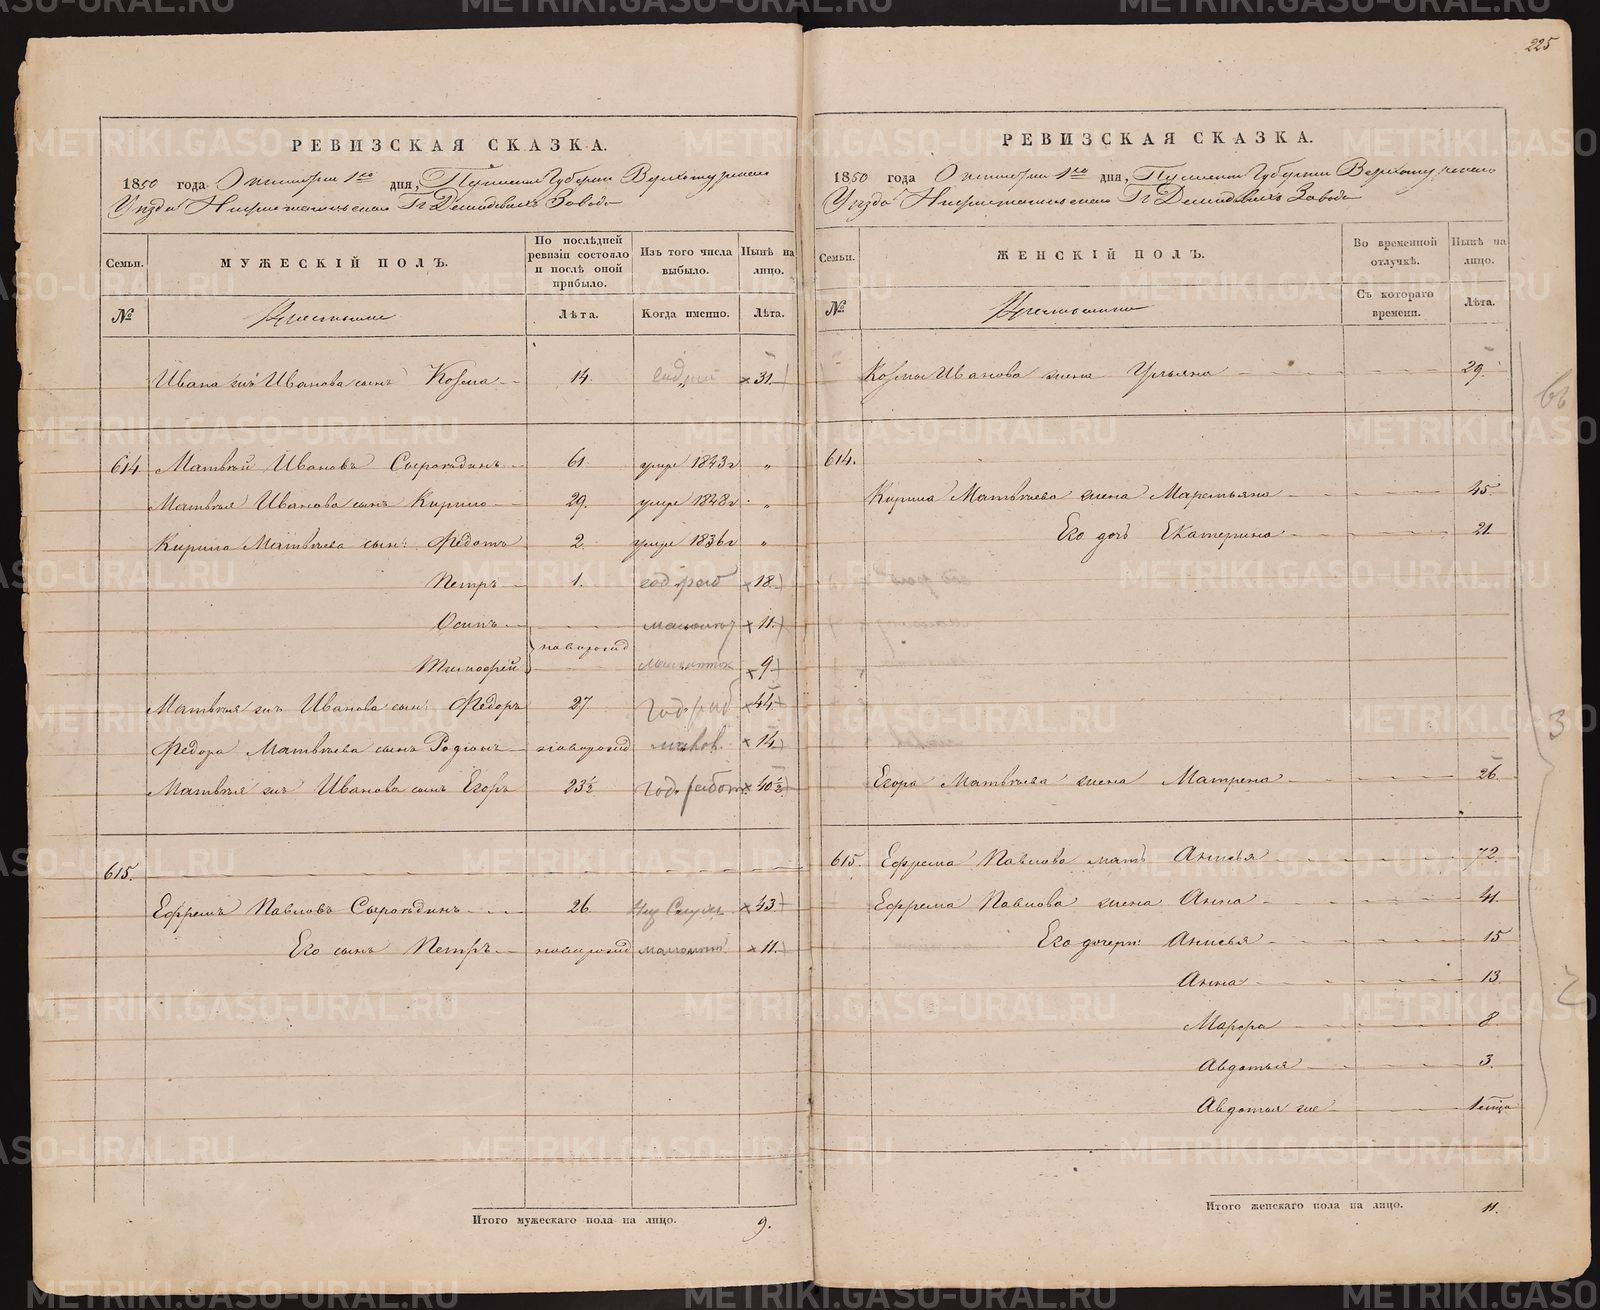 225
РЕВИЗСКАЯ СКАЗКА.
1850 года Октября 1го дня, Пермской Губернии Верхотурскаго
Уезда Нижнетагильскаго Гг Демидовыхъ Завода
Семьи. МУЖЕСКІЙ ПОЛЪ. По послѣдней ревизіи состояло и послѣ оной прибыло. Изъ того числа выбыло. Нынѣ на лицо.
№ Крестьяне Лѣта. Когда именно. Лѣта.
Ивана Иванова сынъ Козма 14. 31.
614 Матвѣй Ивановъ Сыроѣдинъ 61 умре 1843г "
Матвѣя Иванова сынъ Кирило 29. умре 1848г "
Кирила Матвѣева сын: Федотъ 2. умре 1836г "
Петръ 1. год. раб 18.
Осипъ 11.
новорожд
Тимофей 9
Матвѣя Иванова сын: Федоръ 27 год. раб 44
Федора Матвѣева сынъ Родіонъ новорожд 14
Матвѣя Иванова сынъ Егоръ 23½ год. работ. 40½
615.
Ефремъ Павловъ Сыроѣдинъ 26. 43
Его сынъ Петръ новорожд 11.
Итого мужескаго пола на лицо. 9.
РЕВИЗСКАЯ СКАЗКА.
1850 года Октября 1го дня, Пермской Губерніи Верхотурскаго
Уезда Нижнетагильскаго Гг Демидовыхъ Завода
Семьи. ЖЕНСКІЙ ПОЛЪ. Во временной отлучкѣ. Нынѣ на лицо.
№ Крестьянки Съ котораго времени. Лѣта.
Козмы Иванова жена Ульяна 29.
614.
Кирила Матвѣева жена Маремьяна 45
Его дочь Екатерина 21.
3
Егора Матвѣева жена Матрена 26.
615. Ефрема Павлова мать Анисья 72.
Ефрема Павлова жена Анна 41.
Его дочери: Анисья 15
Анна 13.
Марфа 8
Авдотья 3.
Авдотья же
Итого женскаго пола на лицо. 11.
METRIKI.GASO-URAL.RU